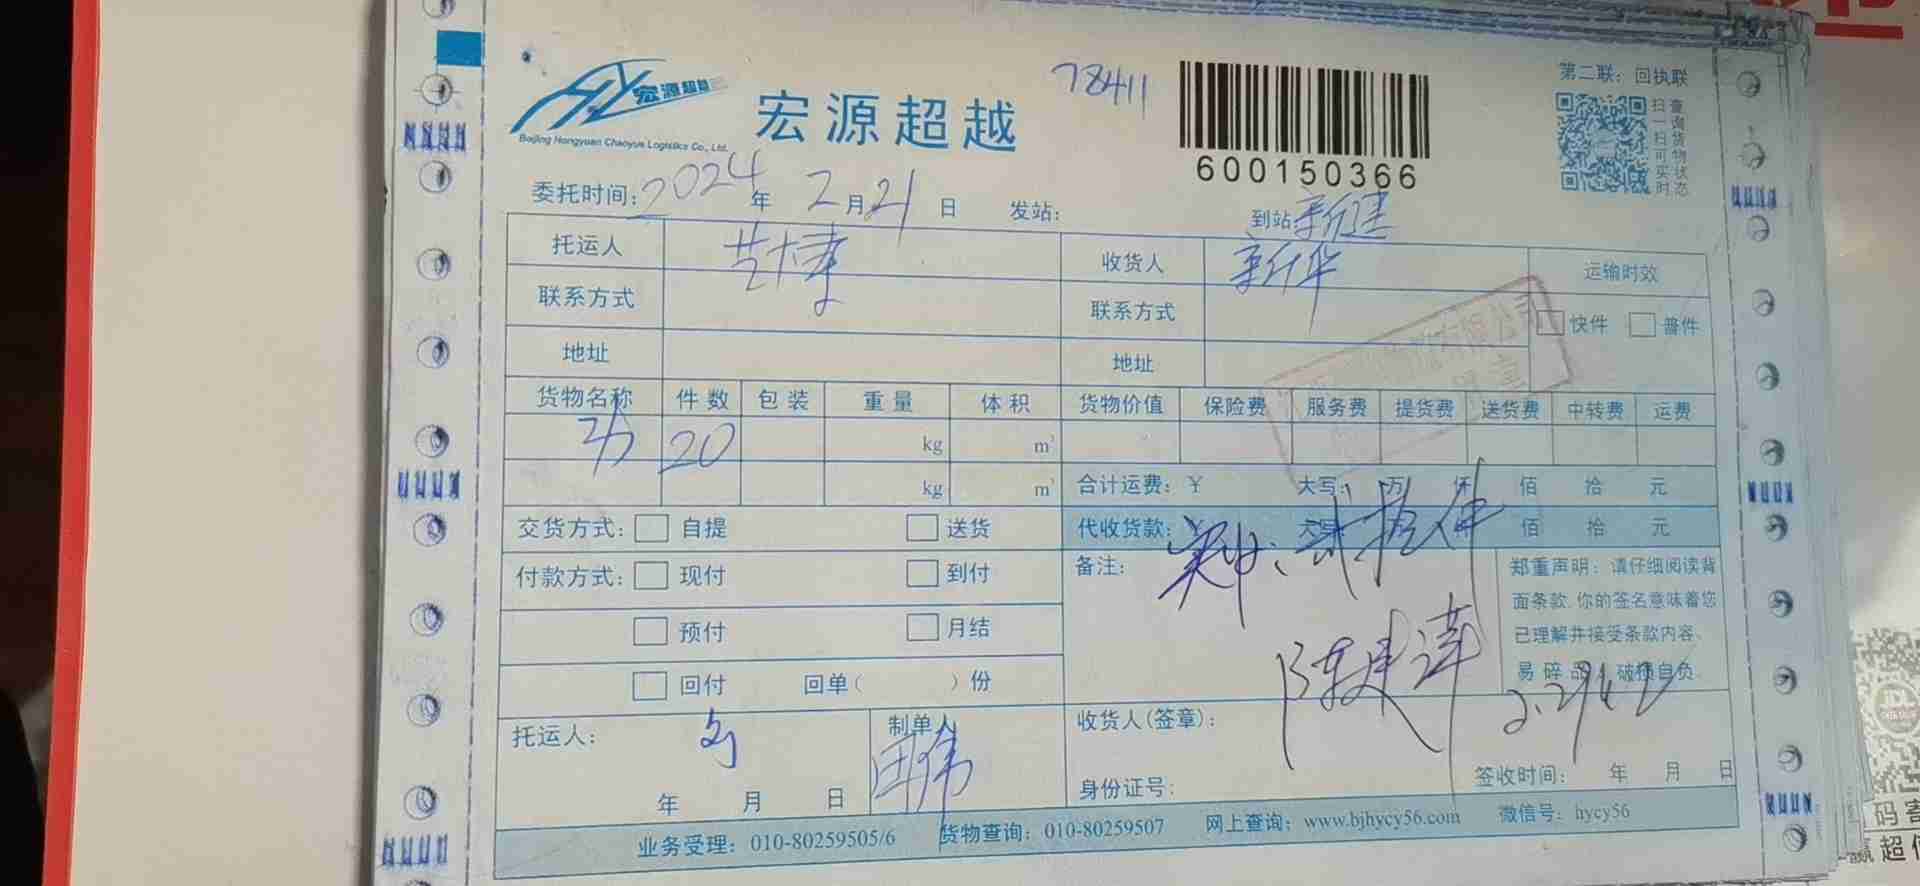 宏源超越
Beijing Hongyuan Chaoyue Logistics Co., Ltd.
宏源超越
78411
600150366
第二联：回执联
扫一扫可实时
查询货物状态
委托时间：2024年2月21日 发站： 到站 新疆
托运人 收货人 新华 运输时效
联系方式 联系方式 快件 普件
地址 地址
货物名称 件数 包装 重量 体积 货物价值 保险费 服务费 提货费 送货费 中转费 运费
20 kg m³
kg m³ 合计运费：￥ 大写： 万 仟 佰 拾 元
交货方式： 自提 送货 代收货款：￥ 大写 佰 拾 元
实收：贰拾件
付款方式： 现付 到付 备注：
郑重声明：请仔细阅读背
面条款,你的签名意味着您
已理解并接受条款内容、
易碎品 破损自负.
预付 月结
回付 回单（ ）份
陈建萍
托运人： 制单人 田伟 收货人(签章)：
年 月 日 身份证号： 签收时间： 年 月 日
业务受理：010-80259505/6 货物查询：010-80259507 网上查询：www.bjhycy56.com 微信号：hycy56